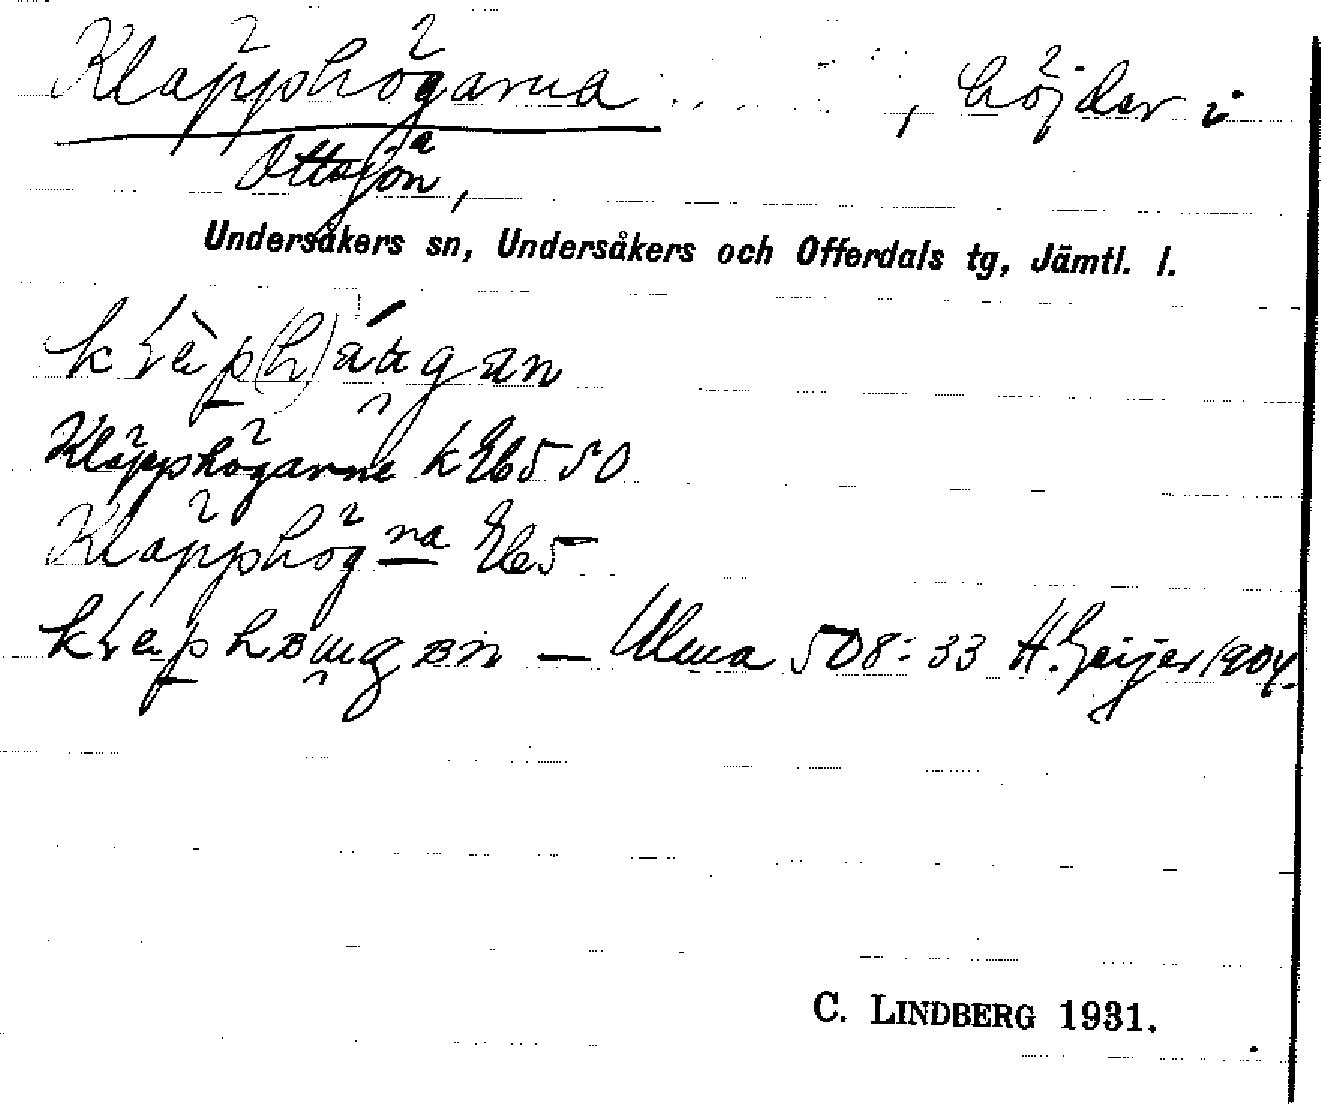 Kläpphögarna, höjder i
Ottsjön,
Undersåkers sn, Undersåkers och Offerdals tg, Jämtl. l.
Kläpphögarne k Eb 5 50
Kläpphögna Eb 5
— Ulma 508:33 H. Geijer 1904.
C. LINDBERG 1931.